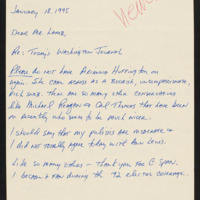 January 18, 1995
Dear Mr. Lamb,
Re: Today's Washington Journal
Please do not have Arianna Huffington on
again. She came across as a brash, uncompassionate,
rich snob. There are so many other conservatives
like Michael Reagan or Cal Thomas that have been
on recently who seem to be much nicer.
I should say that my politics are moderate so
I did not totally agree today with Ron Lewis.
Like so many others - thank you for C-Span.
I became a fan during the '92 election coverage.